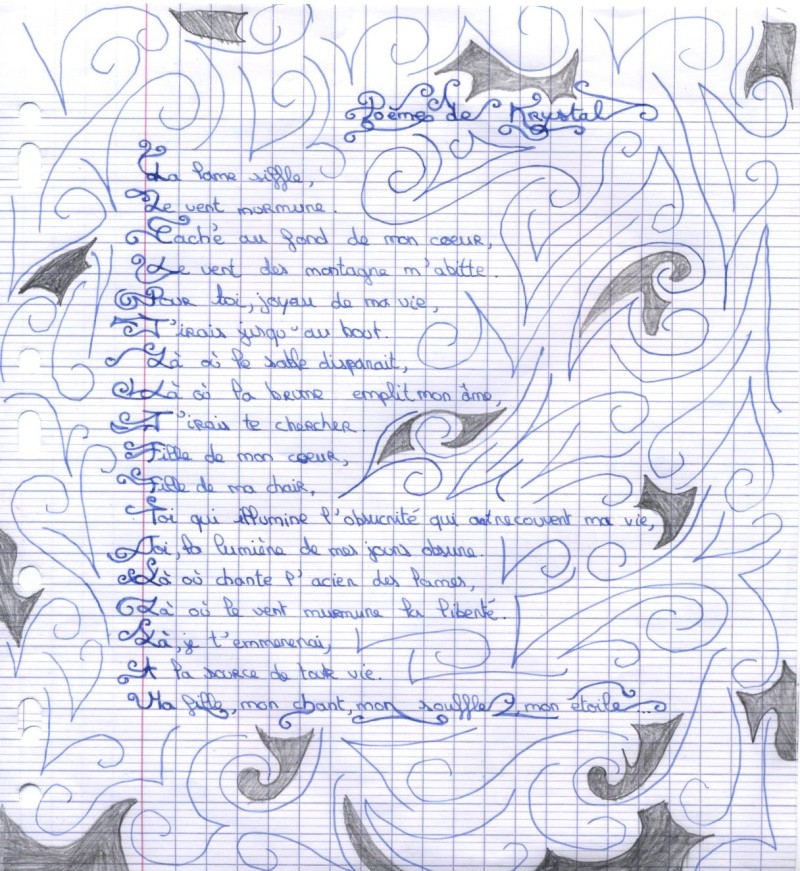 Poèmes de Krystal
La lame siffle,
Le vent murmure.
Caché au fond de mon coeur,
Le vent des montagne m'abitte.
Pour toi, joyau de ma vie,
J'irais jusqu'au bout.
Là où le sable disparait,
Là où la brume emplit mon âme,
J'irais te chercher.
Fille de mon coeur,
Fille de ma chair,
Toi qui illumine l'obscurité qui recouvent ma vie,
Toi, la lumière de mes jours obscure.
Là où chante l'acier des lames,
Là où le vent murmure la liberté.
Là, je t'emmenerai,
A la source de toute vie.
Ma fille, mon chant, mon souffle, mon étoile...